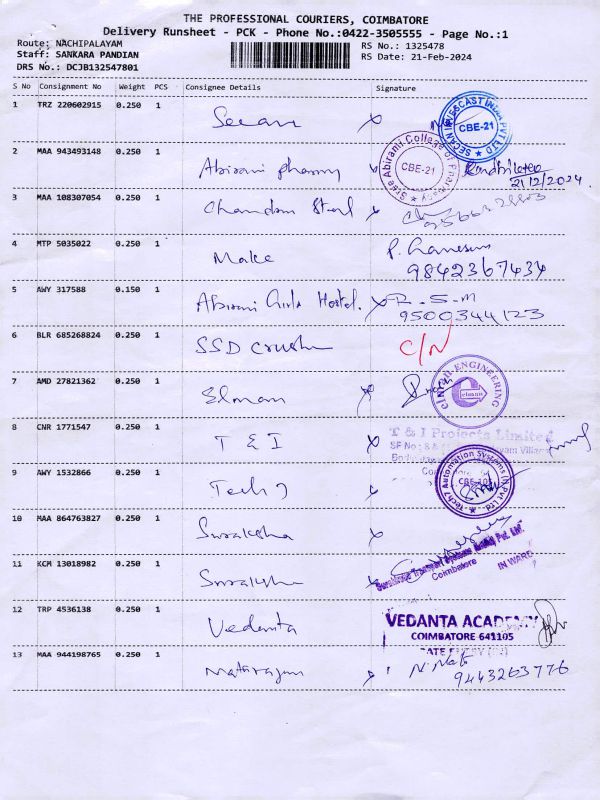 THE PROFESSIONAL COURIERS, COIMBATORE
Delivery Runsheet - PCK - Phone No.:0422-3505555 - Page No.:1
Route: NACHIPALAYAM
RS No.: 1325478
Staff: SANKARA PANDIAN
RS Date: 21-Feb-2024
DRS No.: DCJB132547801
S No Consignment No Weight PCS Consignee Details Signature
1 TRZ 220602915 0.250 1 Secan
SECAN INVESCAST INDIA PVT LTD CBE-21
2 MAA 943493148 0.250 1 Abirami pharmy
Sree Abirami College of Pharmacy CBE-21
21/2/2024.
3 MAA 108307054 0.250 1 Chandra Steel
4 MTP 5035022 0.250 1 Make P. Ganesan
9842367434
5 AWY 317588 0.150 1 Abirami Girls Hostel. R. S. M
9500344123
6 BLR 685268824 0.250 1 SSD crusher C/N
7 AMD 27821362 0.250 1 Elman
ENGINEERING elman
8 CNR 1771547 0.250 1 T & I
T & I Projects Limited
9 AWY 1532866 0.250 1 Tech 7
Tech7 Automation Systems (I) Pvt Ltd
10 MAA 864763827 0.250 1 Suraksha
11 KCM 13018982 0.250 1 Suraksha
Coimbatore IN WARD
12 TRP 4536138 0.250 1 Vedanta
VEDANTA ACADEMY
COIMBATORE 641105
13 MAA 944198765 0.250 1 Natarajan
9443263776